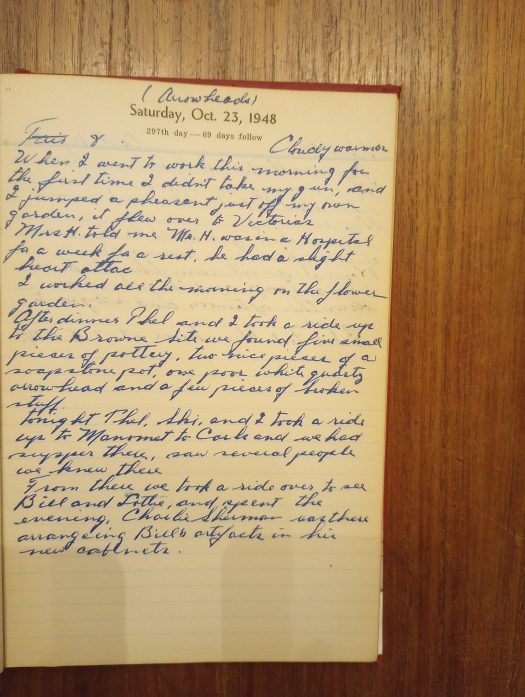 (Arrowheads)
Saturday, Oct. 23, 1948
297th day — 69 days follow
Fair & Cloudy warmer
When I went to work this morning for
the first time I didn't take my gun, and
I jumped a pheasant, just off my own
garden, it flew over to Victorias
Mrs H. told me Mr. H. was in a Hospital
for a week for a rest, he had a slight
heart attac
I worked all the morning on the flower
garden.
After dinner Thel and I took a ride up
to the Browne site we found five small
pieces of pottery, two nice pieces of a
soapstone pot, one poor white quartz
arrowhead and a few pieces of broken
stuff.
tonight Thel, and I took a ride
up to Manomet to Carls and we had
supper there, saw several people
we knew there
From there we took a ride over to see
Bill and Lottie, and spent the
evening, Charlie Sherman was there
arrangeing Bill's artifacts in his
new cabinets.